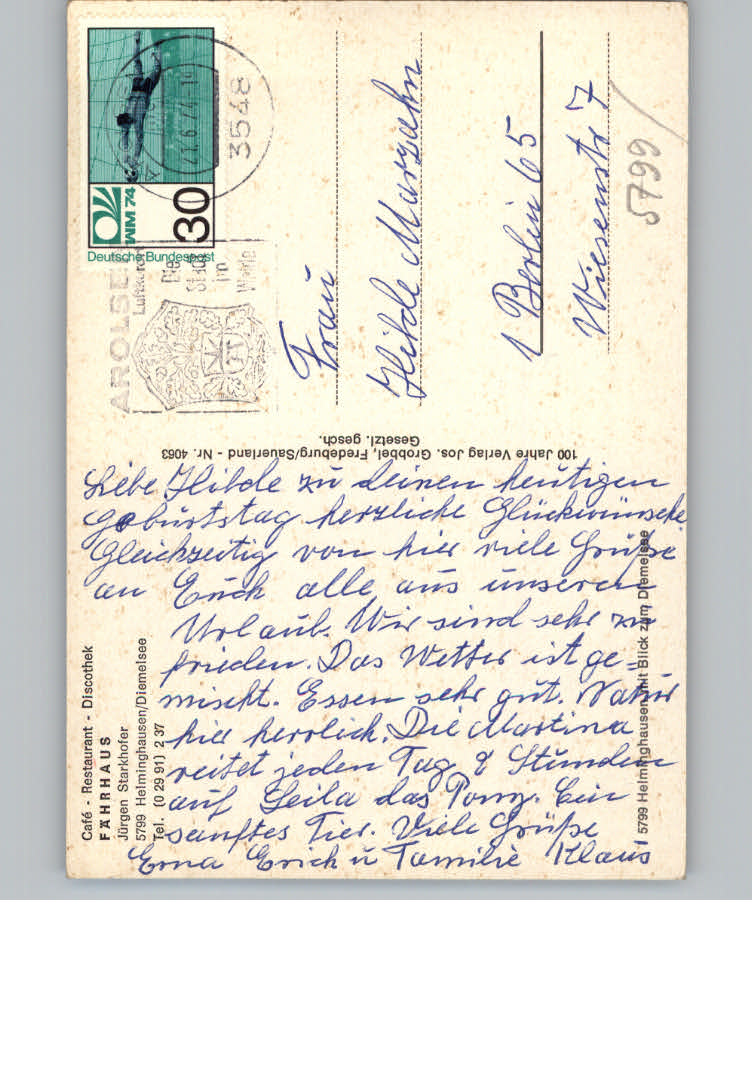 Deutsche Bundespost
30
WM 74
21.6.74
3548
AROLSEN
Luftkurort
Die
Stadt
im
Walde
Frau
Hilde Marzahn
1 Berlin 65
Wiesenstr 7
5799
100 Jahre Verlag Jos. Grobbel, Fredeburg/Sauerland - Nr. 4063
Gesetzl. gesch.
Liebe Hilde zu deinen heutigen
Geburtstag herzliche Glückwünsche
Gleichzeitig von hier viele Grüße
an Euch alle aus unseren
Urlaub. Wir sind sehr zu
frieden. Das Wetter ist ge=
mischt. Essen sehr gut. Natur
hier herrlich. Die Martina
reitet jeden Tag 2 Stunden
auf Leila das Pony. Ein
sanftes Tier. Viele Grüße
Erna Erich u Familie Klaus
Café - Restaurant - Discothek
FÄHRHAUS
Jürgen Starkhofer
5799 Helminghausen/Diemelsee
Tel. (0 29 91) 2 37
5799 Helminghausen mit Blick zum Diemelsee